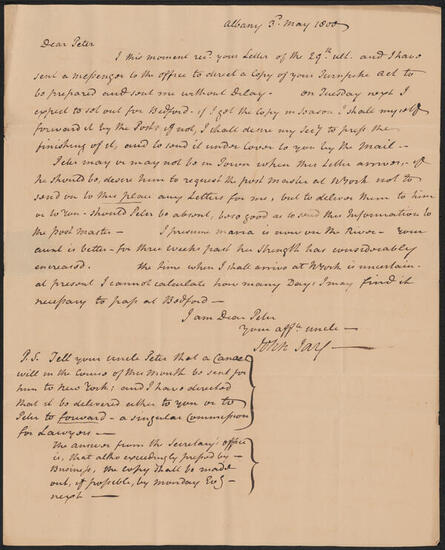 Albany 3d. May 1800
Dear Peter
I this moment recd. your Letter of the 29th ult. and I have
sent a messenger to the office to direct a Copy of your Turnpike Act to
be prepared and sent me without Delay. on Tuesday next I
expect to set out for Bedford. if I get the Copy in season I shall myself
forward it by the Post. if not, I shall desire my Secy. to press the
finishing of it, and to send it under cover to you by the Mail —
Peter may or may not be in Town when this Letter arrives. if
he should be, desire him to request the post master at NYork not to
send on to this place any Letters for me, but to deliver them to him
or to you — should Peter be absent, be so good as to send this Information to
the post master — I presume maria is now on the River — your
aunt is better — for three weeks past her Strength has considerably
encreased. the Time when I shall arrive at NYork is uncertain.
at present I cannot calculate how many Days I may find it
necessary to pass at Bedford —
I am Dear Peter
your affte. uncle —
John Jay —
P.S. Tell your uncle Peter that a Canoe
will in the course of this month be sent for
him to New York; and I have directed
that it be delivered either to you or to
Peter to forward — a singular Commission
for Lawyers —
the answer from the Secretary's office
is, that altho exceedingly pressed by —
Business, the copy shall be made
out, if possible, by monday Evg
next —